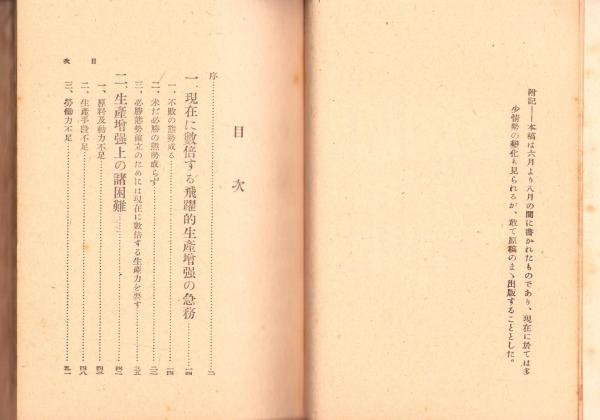 附記――本稿は六月より八月の間に書かれたものであり、現在に於ては多
少情勢の變化も見られるが、敢て原稿のまゝ出版することとした。
目次
序
一、現在に數倍する飛躍的生產增强の急務……一四
一、不敗の態勢成る……一四
二、未だ必勝の態勢成らず
三、必勝態勢確立のためには現在に數倍する生產力を要す
二、生產增强上の諸困難
一、原料及動力不足
二、生產手段不足……四八
三、勞働力不足
目次